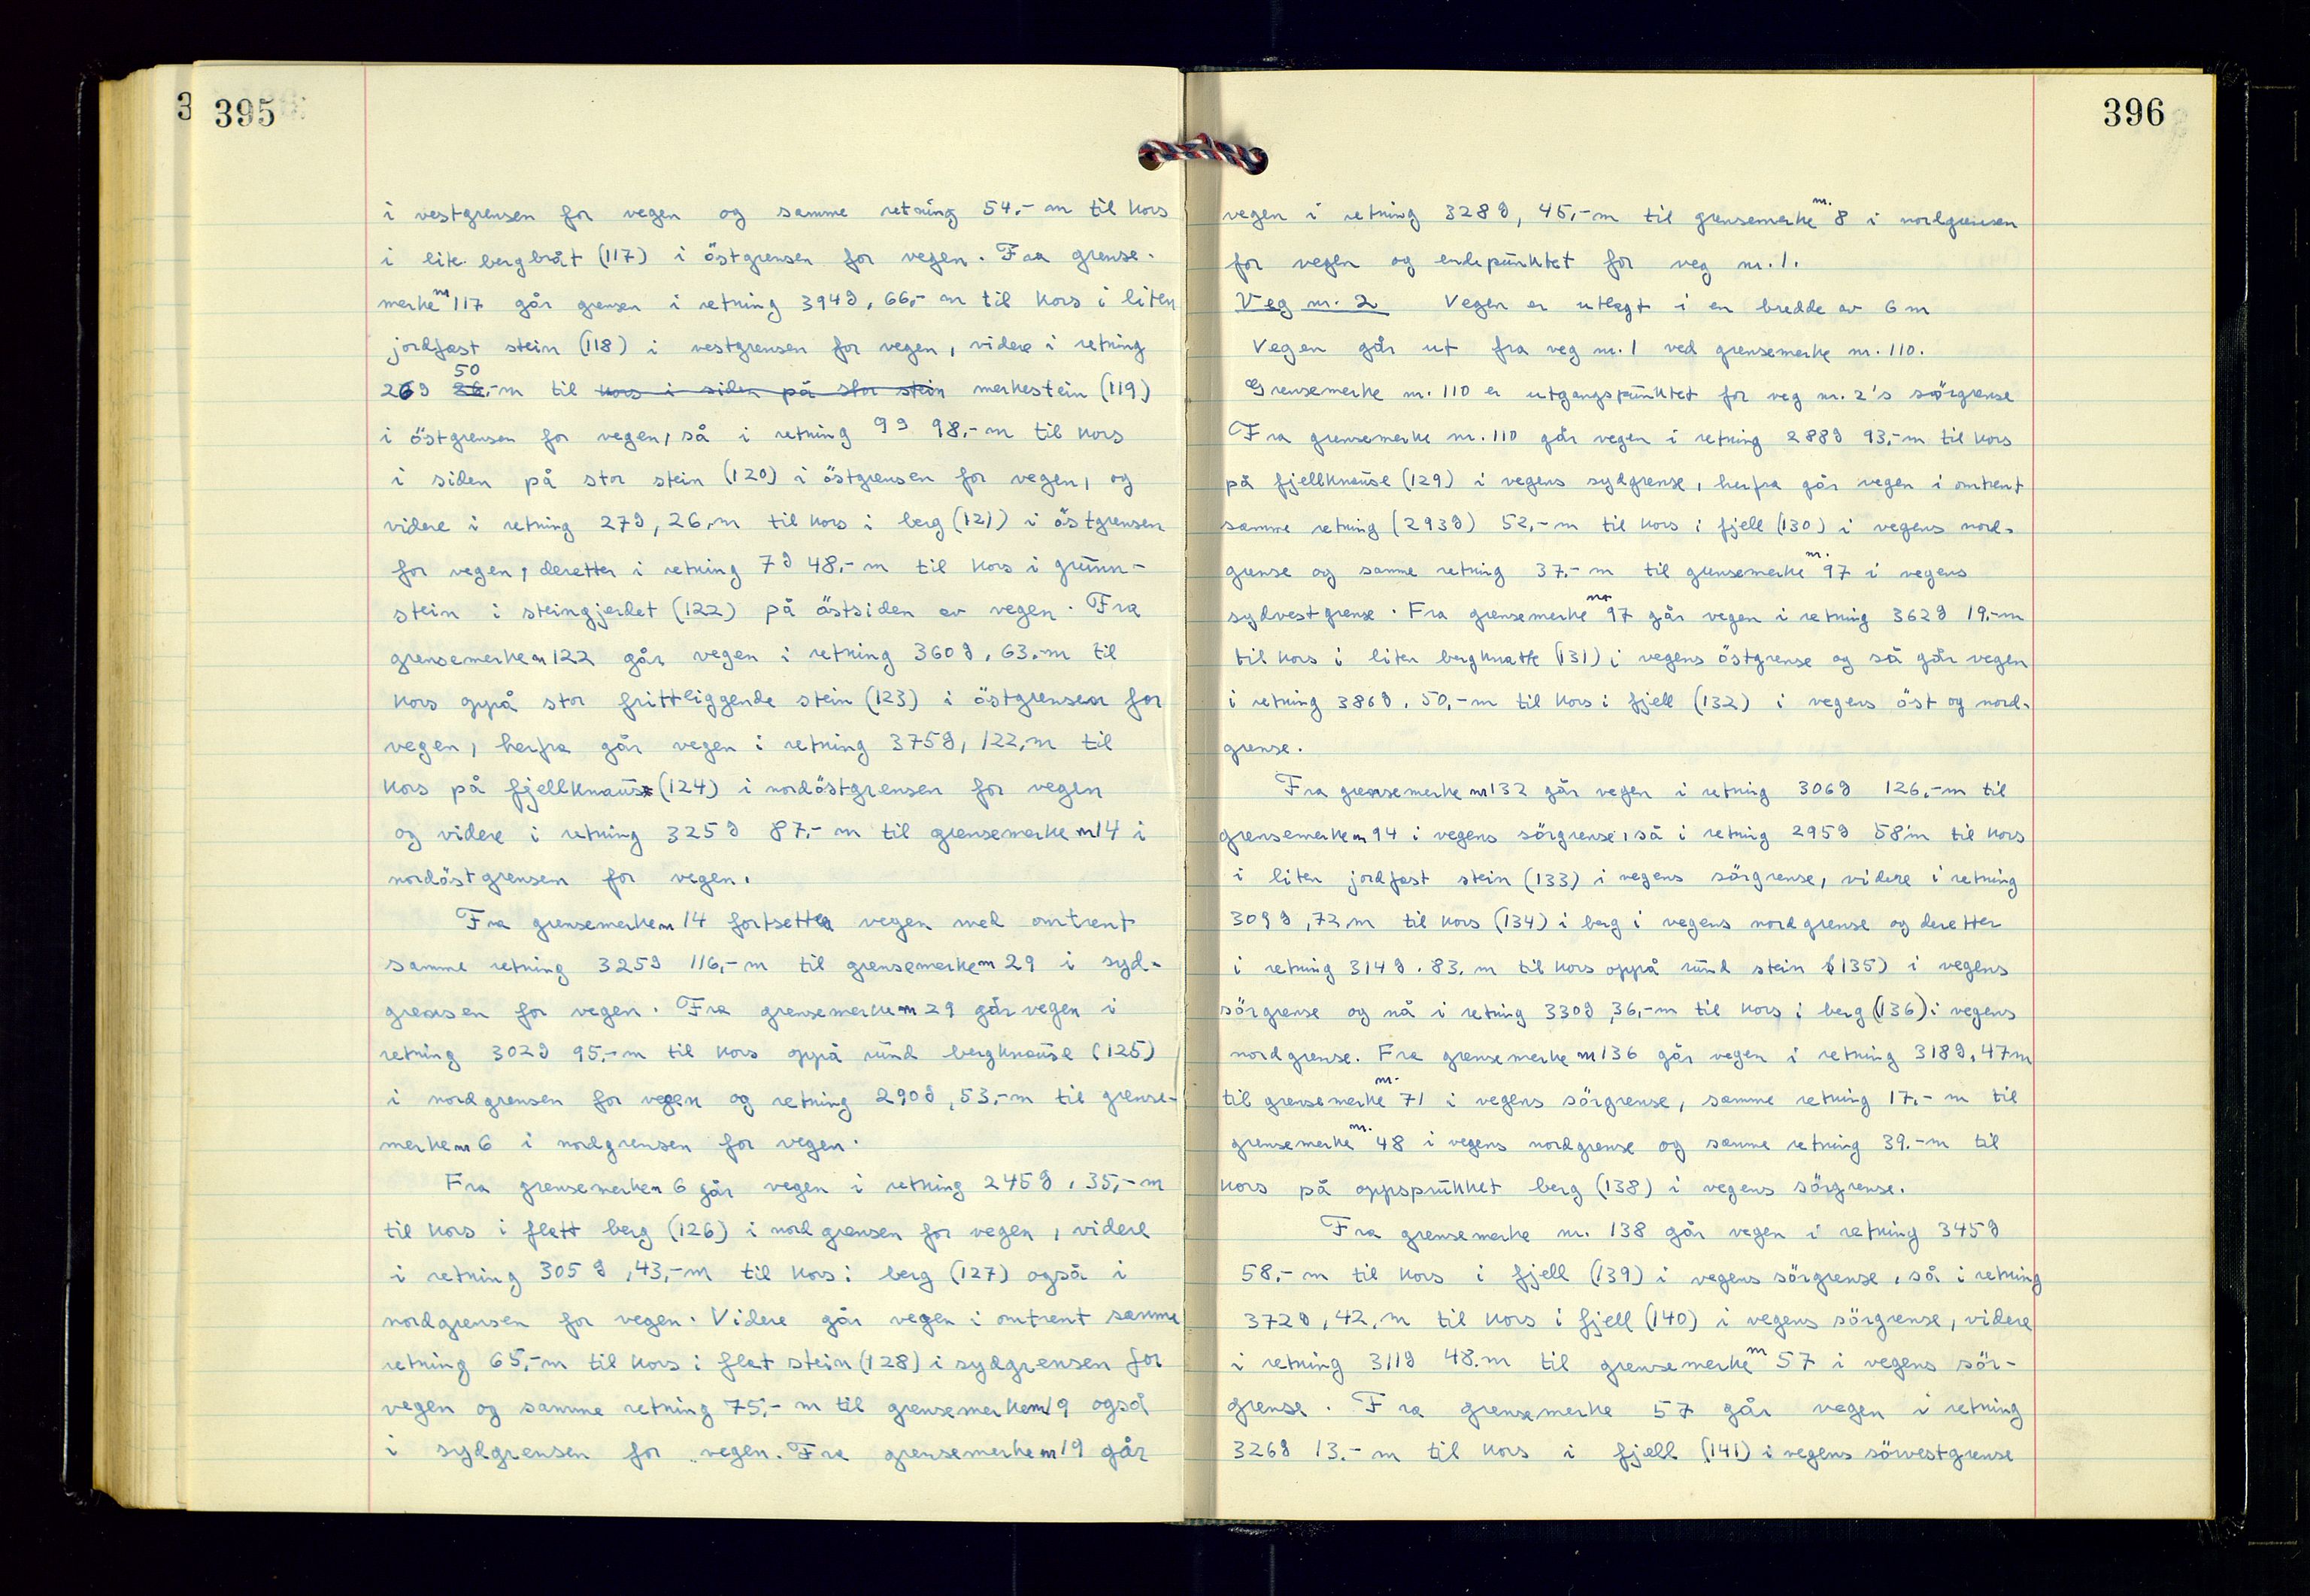 395
i vestgrensen for vegen og samme retning 54,- m til kors
i lite bergbråt (117) i östgrensen for vegen. Fra grense-
merke nr 117 går grensen i retning 394g, 66,- m til kors i liten
jordfast stein (118) i vestgrensen for vegen, videre i retning
269 26,- 50 m til kors i siden på stor stein merkestein (119)
i östgrensen for vegen, så i retning 9g 98,- m til kors
i siden på stor stein (120) i östgrensen for vegen, og
videre i retning 27g, 26,m til kors i berg (121) i östgrensen
for vegen, deretter i retning 7g 48,- m til kors i grunn-
stein i steingjerdet (122) på östsiden av vegen. Fra
grensemerke nr 122 går vegen i retning 360g, 63,-m til
kors oppå stor frittliggende stein (123) i östgrensen for
vegen, herfra går vegen i retning 375g, 122,m til
kors på fjellknaus (124) i nordöstgrensen for vegen
og videre i retning 325g 87,- m til grensemerke nr 14 i
nordöstgrensen for vegen.
Fra grensemerke nr 14 fortsetter vegen med omtrent
samme retning 325g 116,- m til grensemerke nr 29 i syd-
grensen for vegen. Fra grensemerke nr 29 går vegen i
retning 302g 95,-m til kors oppå rund bergknause (125)
i nordgrensen for vegen og retning 290g, 53,-m til grense-
merke nr 6 i nordgrensen for vegen.
Fra grensemerke nr 6 går vegen i retning 245g, 35,-m
til kors i flatt berg (126) i nordgrensen for vegen, videre
i retning 305g, 43,-m til kors i berg (127) også i
nordgrensen for vegen. Videre går vegen i omtrent samme
retning 65,-m til kors i flat stein (128) i sydgrensen for
vegen og samme retning 75,- m til grensemerke nr 19 også
i sydgrensen for vegen. Fra grensemerke nr 19 går
396
vegen i retning 328g, 45,-m til grensemerke nr. 8 i nordgrensen
for vegen og endepunktet for veg nr. 1.
Veg nr. 2 Vegen er utlagt i en bredde av 6 m
Vegen går ut fra veg nr. 1 ved grensemerke nr. 110.
Grensemerke nr. 110 er utgangspunktet for veg nr. 2's sörgrense
Fra grensemerke nr. 110 går vegen i retning 288g 93,-m til kors
på fjellknause (129) i vegens sydgrense, herfra går vegen i omtrent
samme retning (293g) 52,-m til kors i fjell (130) i vegens nord-
grense og samme retning 37,- m til grensemerke nr. 97 i vegens
sydvestgrense. Fra grensemerke nr 97 går vegen i retning 362g 19,-m
til kors i liten bergknatte (131) i vegens östgrense og så går vegen
i retning 386g, 50,-m til kors i fjell (132) i vegens öst og nord-
grense.
Fra grensemerke nr 132 går vegen i retning 306g 126,-m til
grensemerke nr 94 i vegens sörgrense, så i retning 295g 58 m til kors
i liten jordfast stein (133) i vegens sörgrense, videre i retning
309g, 72,m til kors (134) i berg i vegens nordgrense og deretter
i retning 314g. 83. m til kors oppå rund stein (135) i vegens
sörgrense og nå i retning 330g, 36,-m til kors i berg (136) i vegens
nordgrense. Fra grensemerke nr 136 går vegen i retning 318g, 47m
til grensemerke nr. 71 i vegens sörgrense, samme retning 17,- m til
grensemerke nr. 48 i vegens nordgrense og samme retning 39,-m til
kors på oppsprukket berg (138) i vegens sörgrense.
Fra grensemerke nr. 138 går vegen i retning 345g
58,- m til kors i fjell (139) i vegens sörgrense, så i retning
372g, 42,m til kors i fjell (140) i vegens sörgrense, videre
i retning 311g 48.m til grensemerke nr 57 i vegens sör-
grense. Fra grensemerke 57 går vegen i retning
326g 13,- m til kors i fjell (141) i vegens sörvestgrense